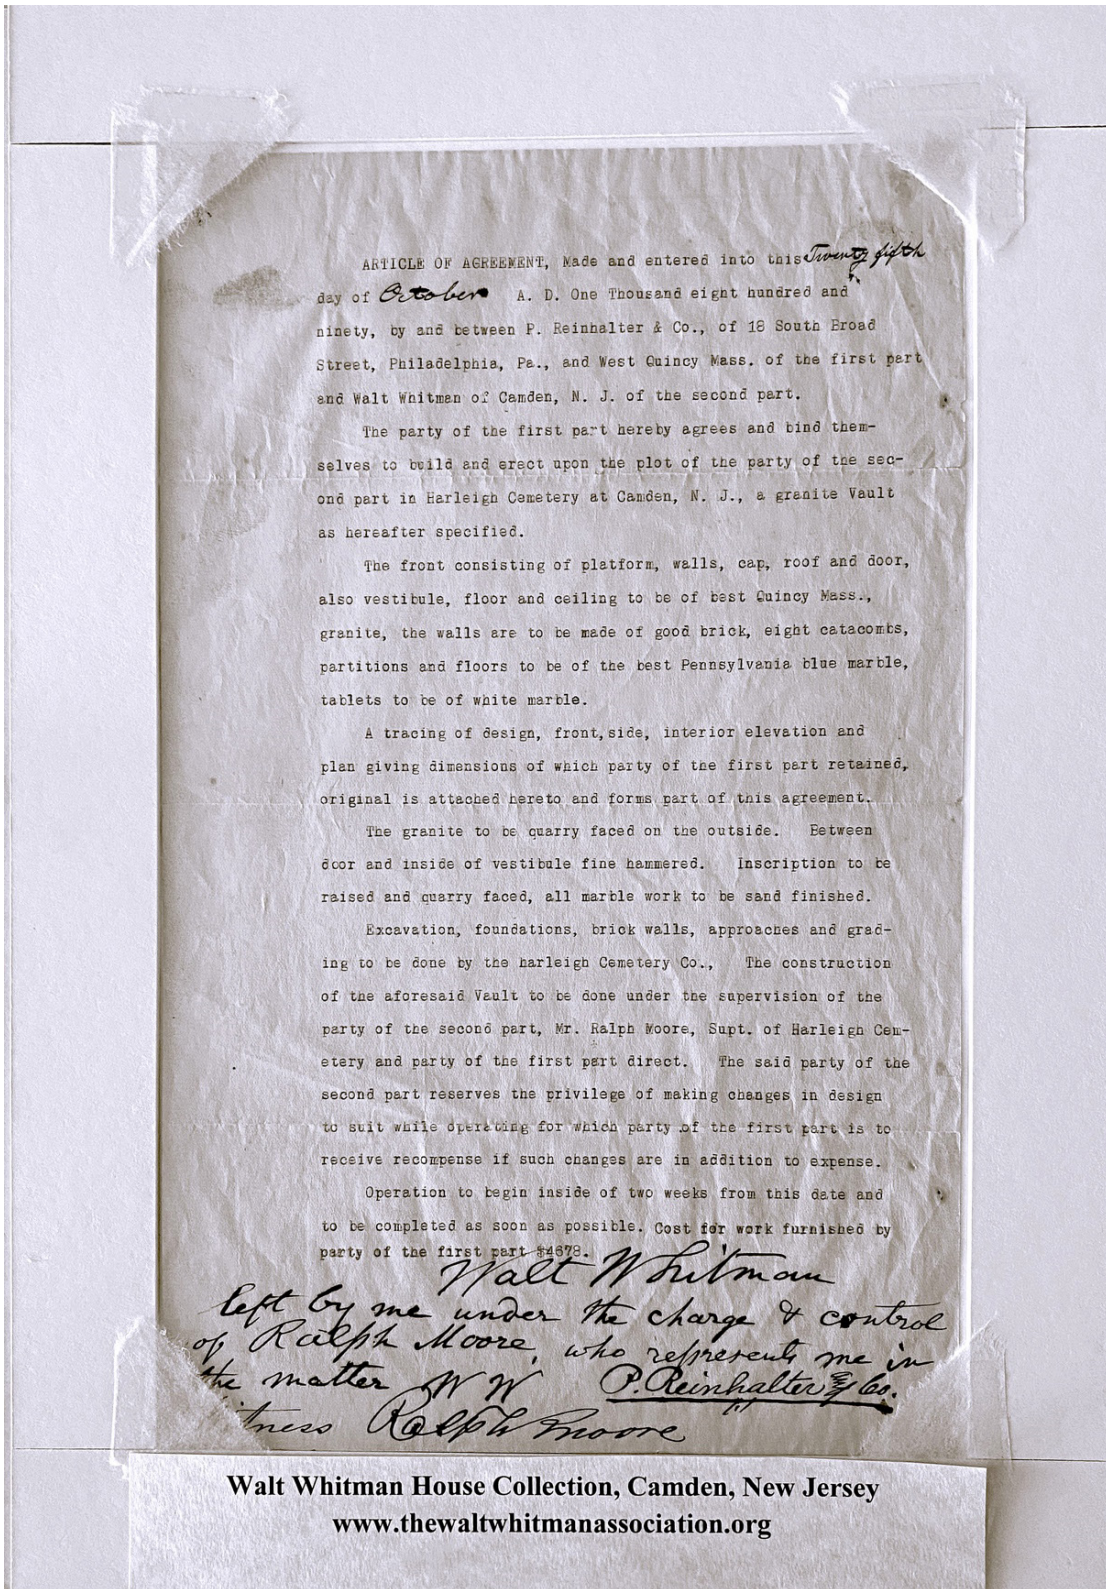 ARTICLE OF AGREEMENT, Made and entered into this Twenty fifth
day of October A. D. One Thousand eight hundred and
ninety, by and between P. Reinhalter & Co., of 18 South Broad
Street, Philadelphia, Pa., and West Quincy Mass. of the first part
and Walt Whitman of Camden, N. J. of the second part.
The party of the first part hereby agrees and bind them-
selves to build and erect upon the plot of the party of the sec-
ond part in Harleigh Cemetery at Camden, N. J., a granite Vault
as hereafter specified.
The front consisting of platform, walls, cap, roof and door,
also vestibule, floor and ceiling to be of best Quincy Mass.,
granite, the walls are to be made of good brick, eight catacombs,
partitions and floors to be of the best Pennsylvania blue marble,
tablets to be of white marble.
A tracing of design, front,side, interior elevation and
plan giving dimensions of which party of the first part retained,
original is attached hereto and forms part of this agreement.
The granite to be quarry faced on the outside. Between
door and inside of vestibule fine hammered. Inscription to be
raised and quarry faced, all marble work to be sand finished.
Excavation, foundations, brick walls, approaches and grad-
ing to be done by the Harleigh Cemetery Co., The construction
of the aforesaid Vault to be done under the supervision of the
party of the second part, Mr. Ralph Moore, Supt. of Harleigh Cem-
etery and party of the first part direct. The said party of the
second part reserves the privilege of making changes in design
to suit while operating for which party of the first part is to
receive recompense if such changes are in addition to expense.
Operation to begin inside of two weeks from this date and
to be completed as soon as possible. Cost for work furnished by
party of the first part $4678.
Walt Whitman
left by me under the charge & control
of Ralph Moore, who represents me in
the matter W W P. Reinhalter & Co.
tness Ralph Moore
Walt Whitman House Collection, Camden, New Jersey
www.thewaltwhitmanassociation.org